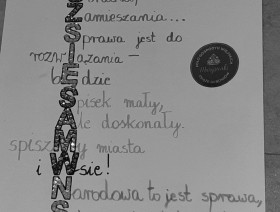 Zamieszania...
Sprawa jest do
rozwIązania –
będzie
Spisek mały,
Ale doskonały.
spiszeMy miasta
i Wsie!
Narodowa to jest sprawa,